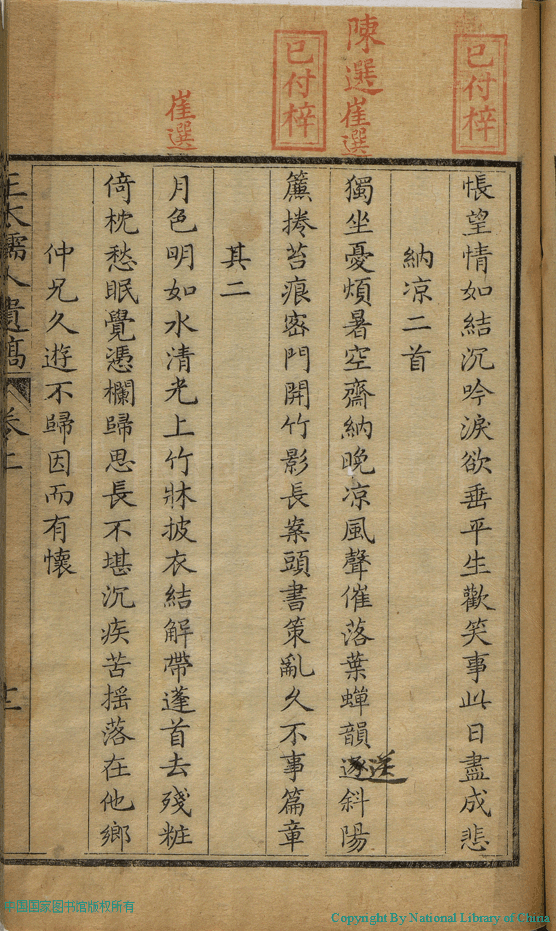 已付梓
陳選崔選
已付梓
崔選
悵望情如結沉吟淚欲垂平生歡笑事此日盡成悲
納凉二首
獨坐憂煩暑空齋納晚凉風聲催落葉蟬韻逐斜陽
送
簾捲苔痕密門開竹影長案頭書策亂久不事篇章
其二
月色明如水清光上竹牀披衣結解帶蓬首去殘粧
倚枕愁眠覺憑欄歸思長不堪沉疾苦搖落在他鄉
仲兄久遊不歸因而有懷
中国国家图书馆版权所有
Copyright By National Library of China